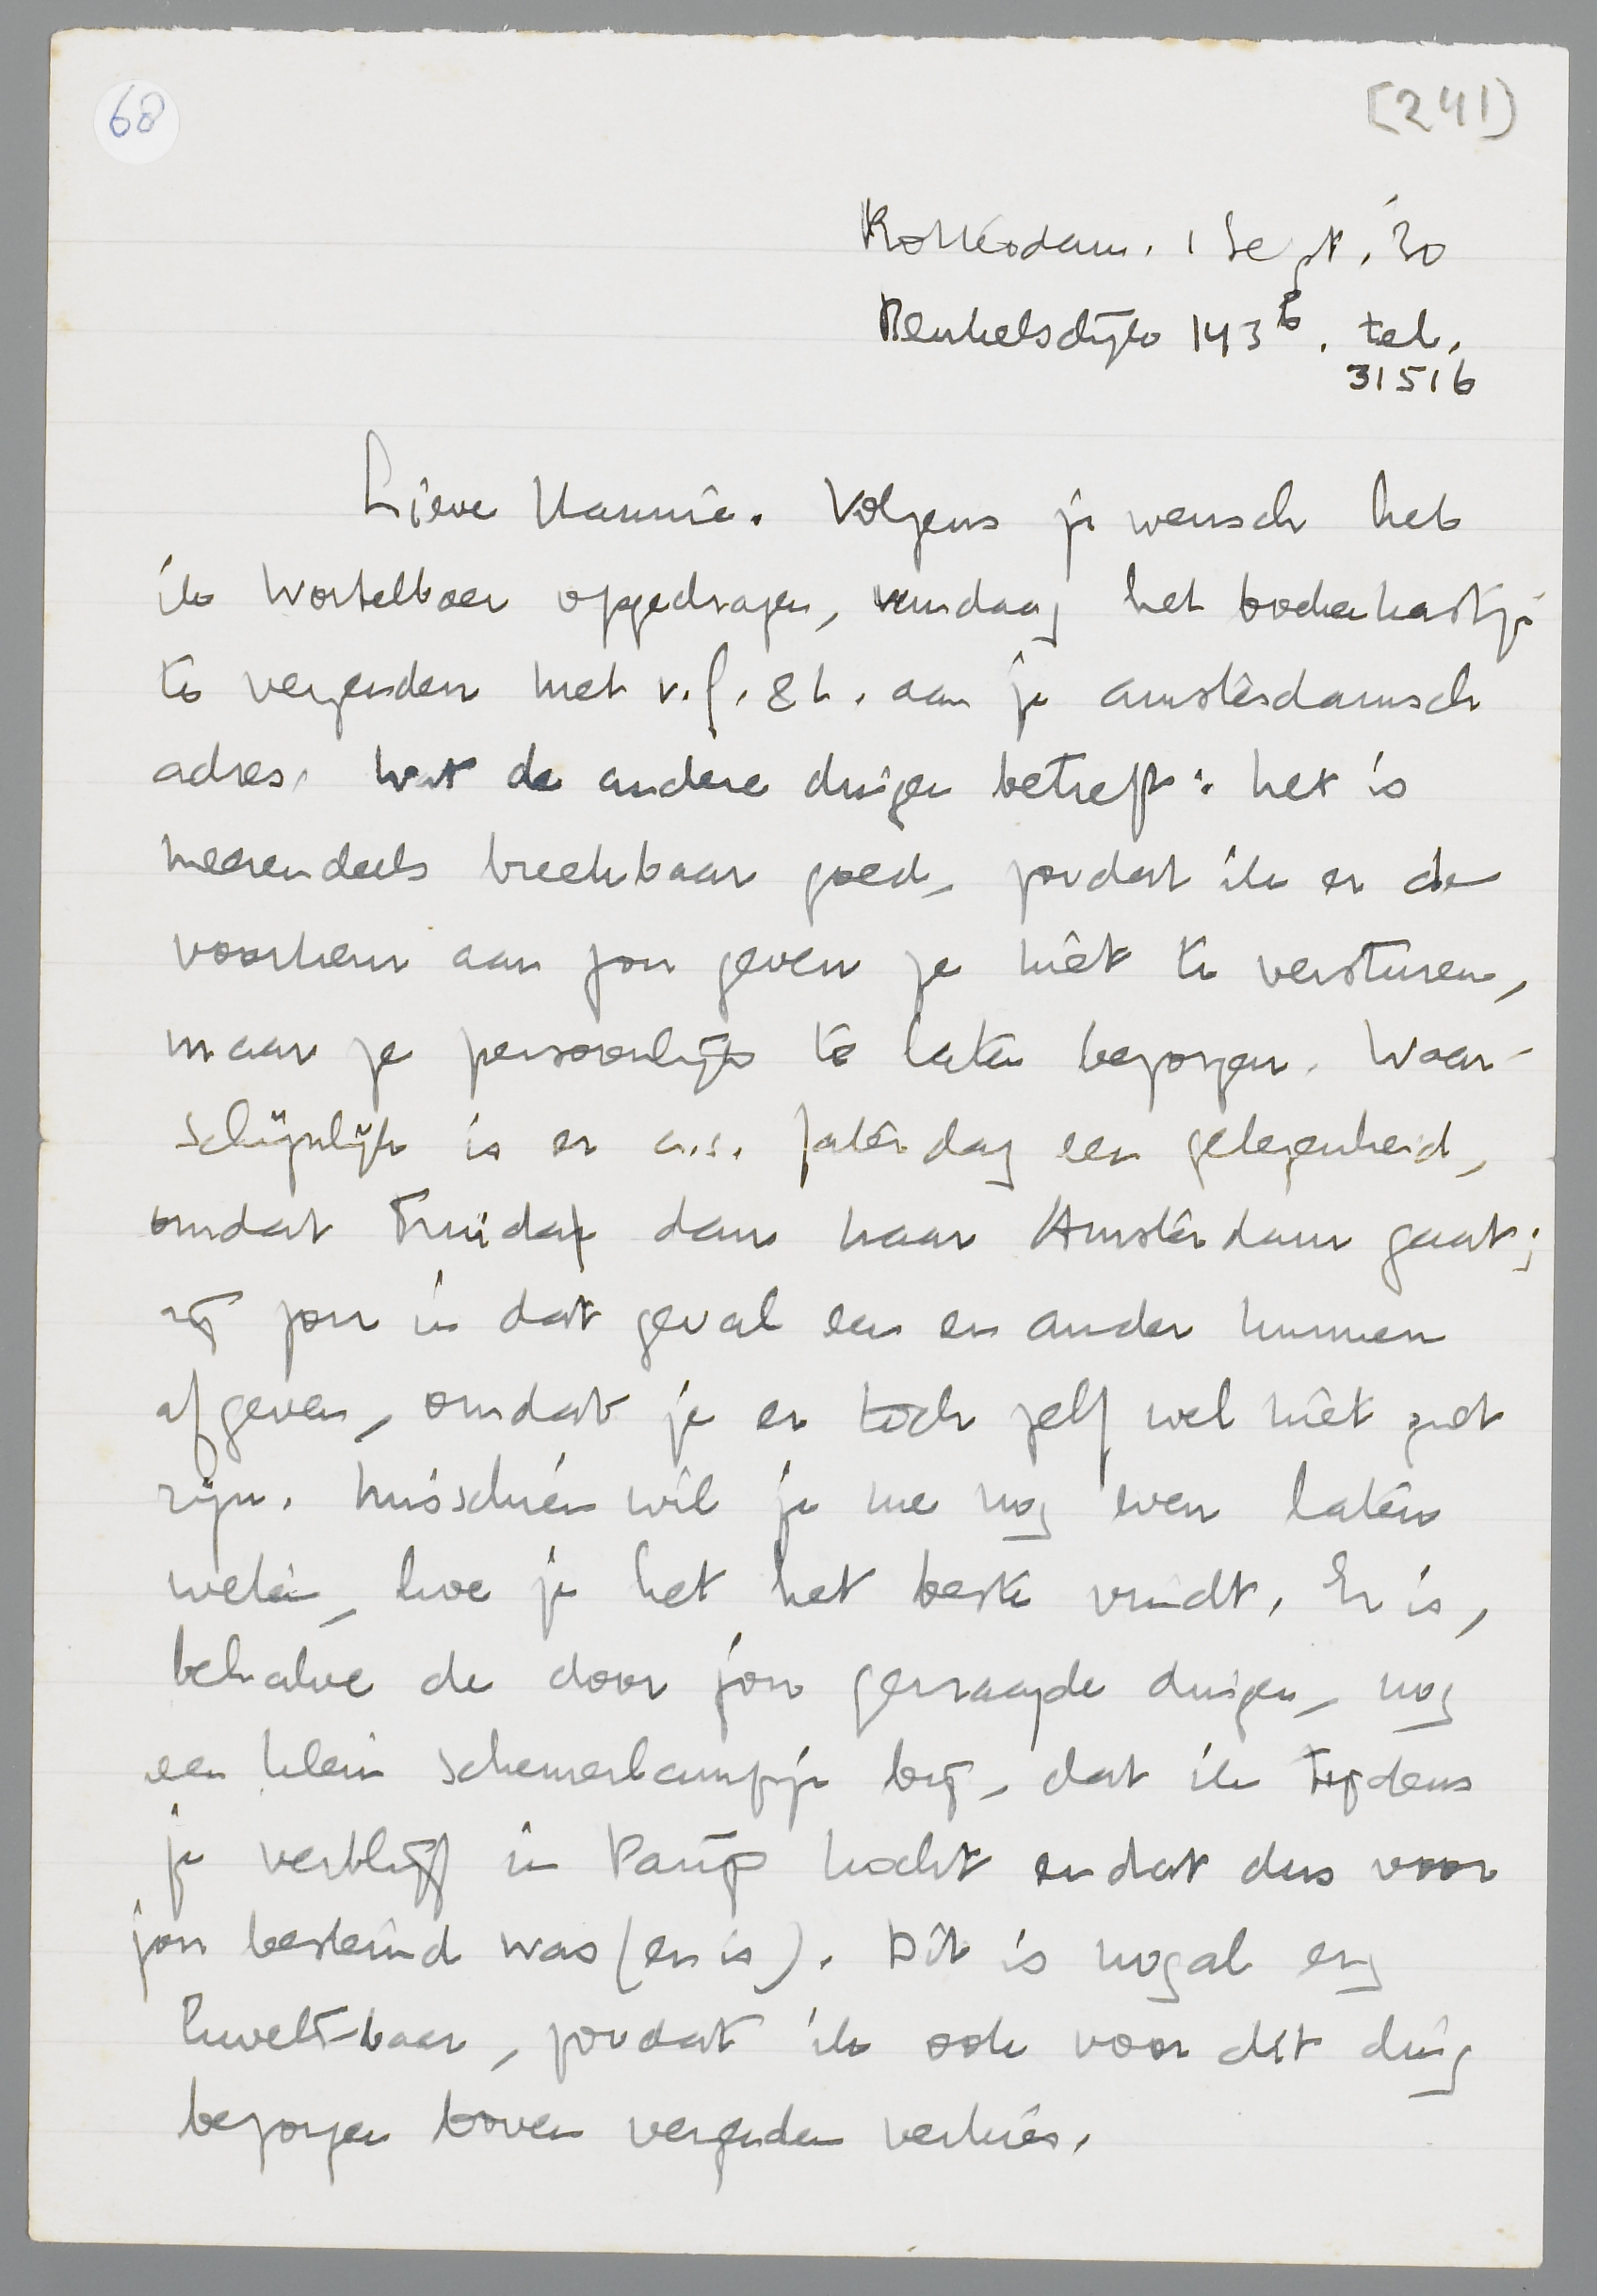 68
(241)
Rotterdam. 1 Sept. '30
Beukelsdijk 143 B. tel.
31516
Lieve Hannie. Volgens je wensch heb
ik Wortelboer opgedragen, vandaag het boekenkastje
te verzenden met v.G. & L. aan je amsterdamsch
adres. Wat de andere dingen betreft: het is
meerendeels breekbaar goed, zoodat ik er de
voorkeur aan zou geven ze niet te versturen,
maar ze persoonlijk te laten bezorgen. Waar-
schijnlijk is er a.s. Zaterdag een gelegenheid,
omdat Truida dan naar Amsterdam gaat;
zij zou in dat geval een en ander kunnen
afgeven, omdat je er toch zelf wel niet zult
zijn. Misschien wil je me nog even laten
weten, hoe je het het beste vindt. Er is,
behalve de door jou gevraagde dingen, nog
een klein schemerlampje bij, dat ik tijdens
je verblijf in Parijs kocht en dat dus voor
jou bestemd was (en is). Dit is nogal erg
kwetsbaar, zoodat ik ook voor dit ding
bezorgen boven verzenden verkies.